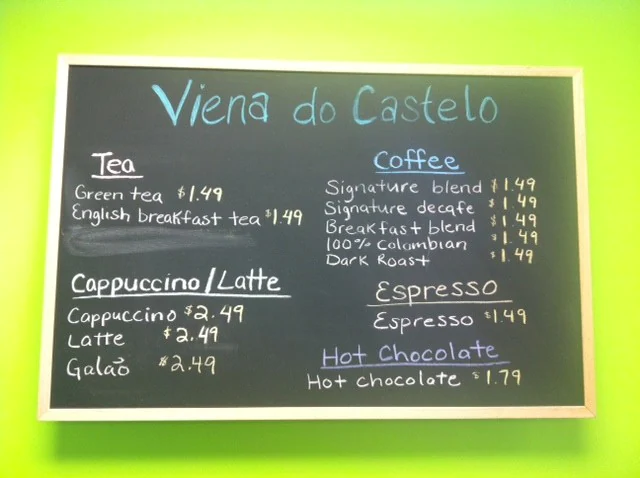 Viena do Castelo
Tea
Green tea $1.49
English breakfast tea $1.49
Cappuccino/Latte
Cappuccino $2.49
Latte $2.49
Galaõ $2.49
Coffee
Signature blend $1.49
Signature decafe $1.49
Breakfast blend $1.49
100% Colombian $1.49
Dark Roast $1.49
Espresso
Espresso $1.49
Hot Chocolate
Hot chocolate $1.79